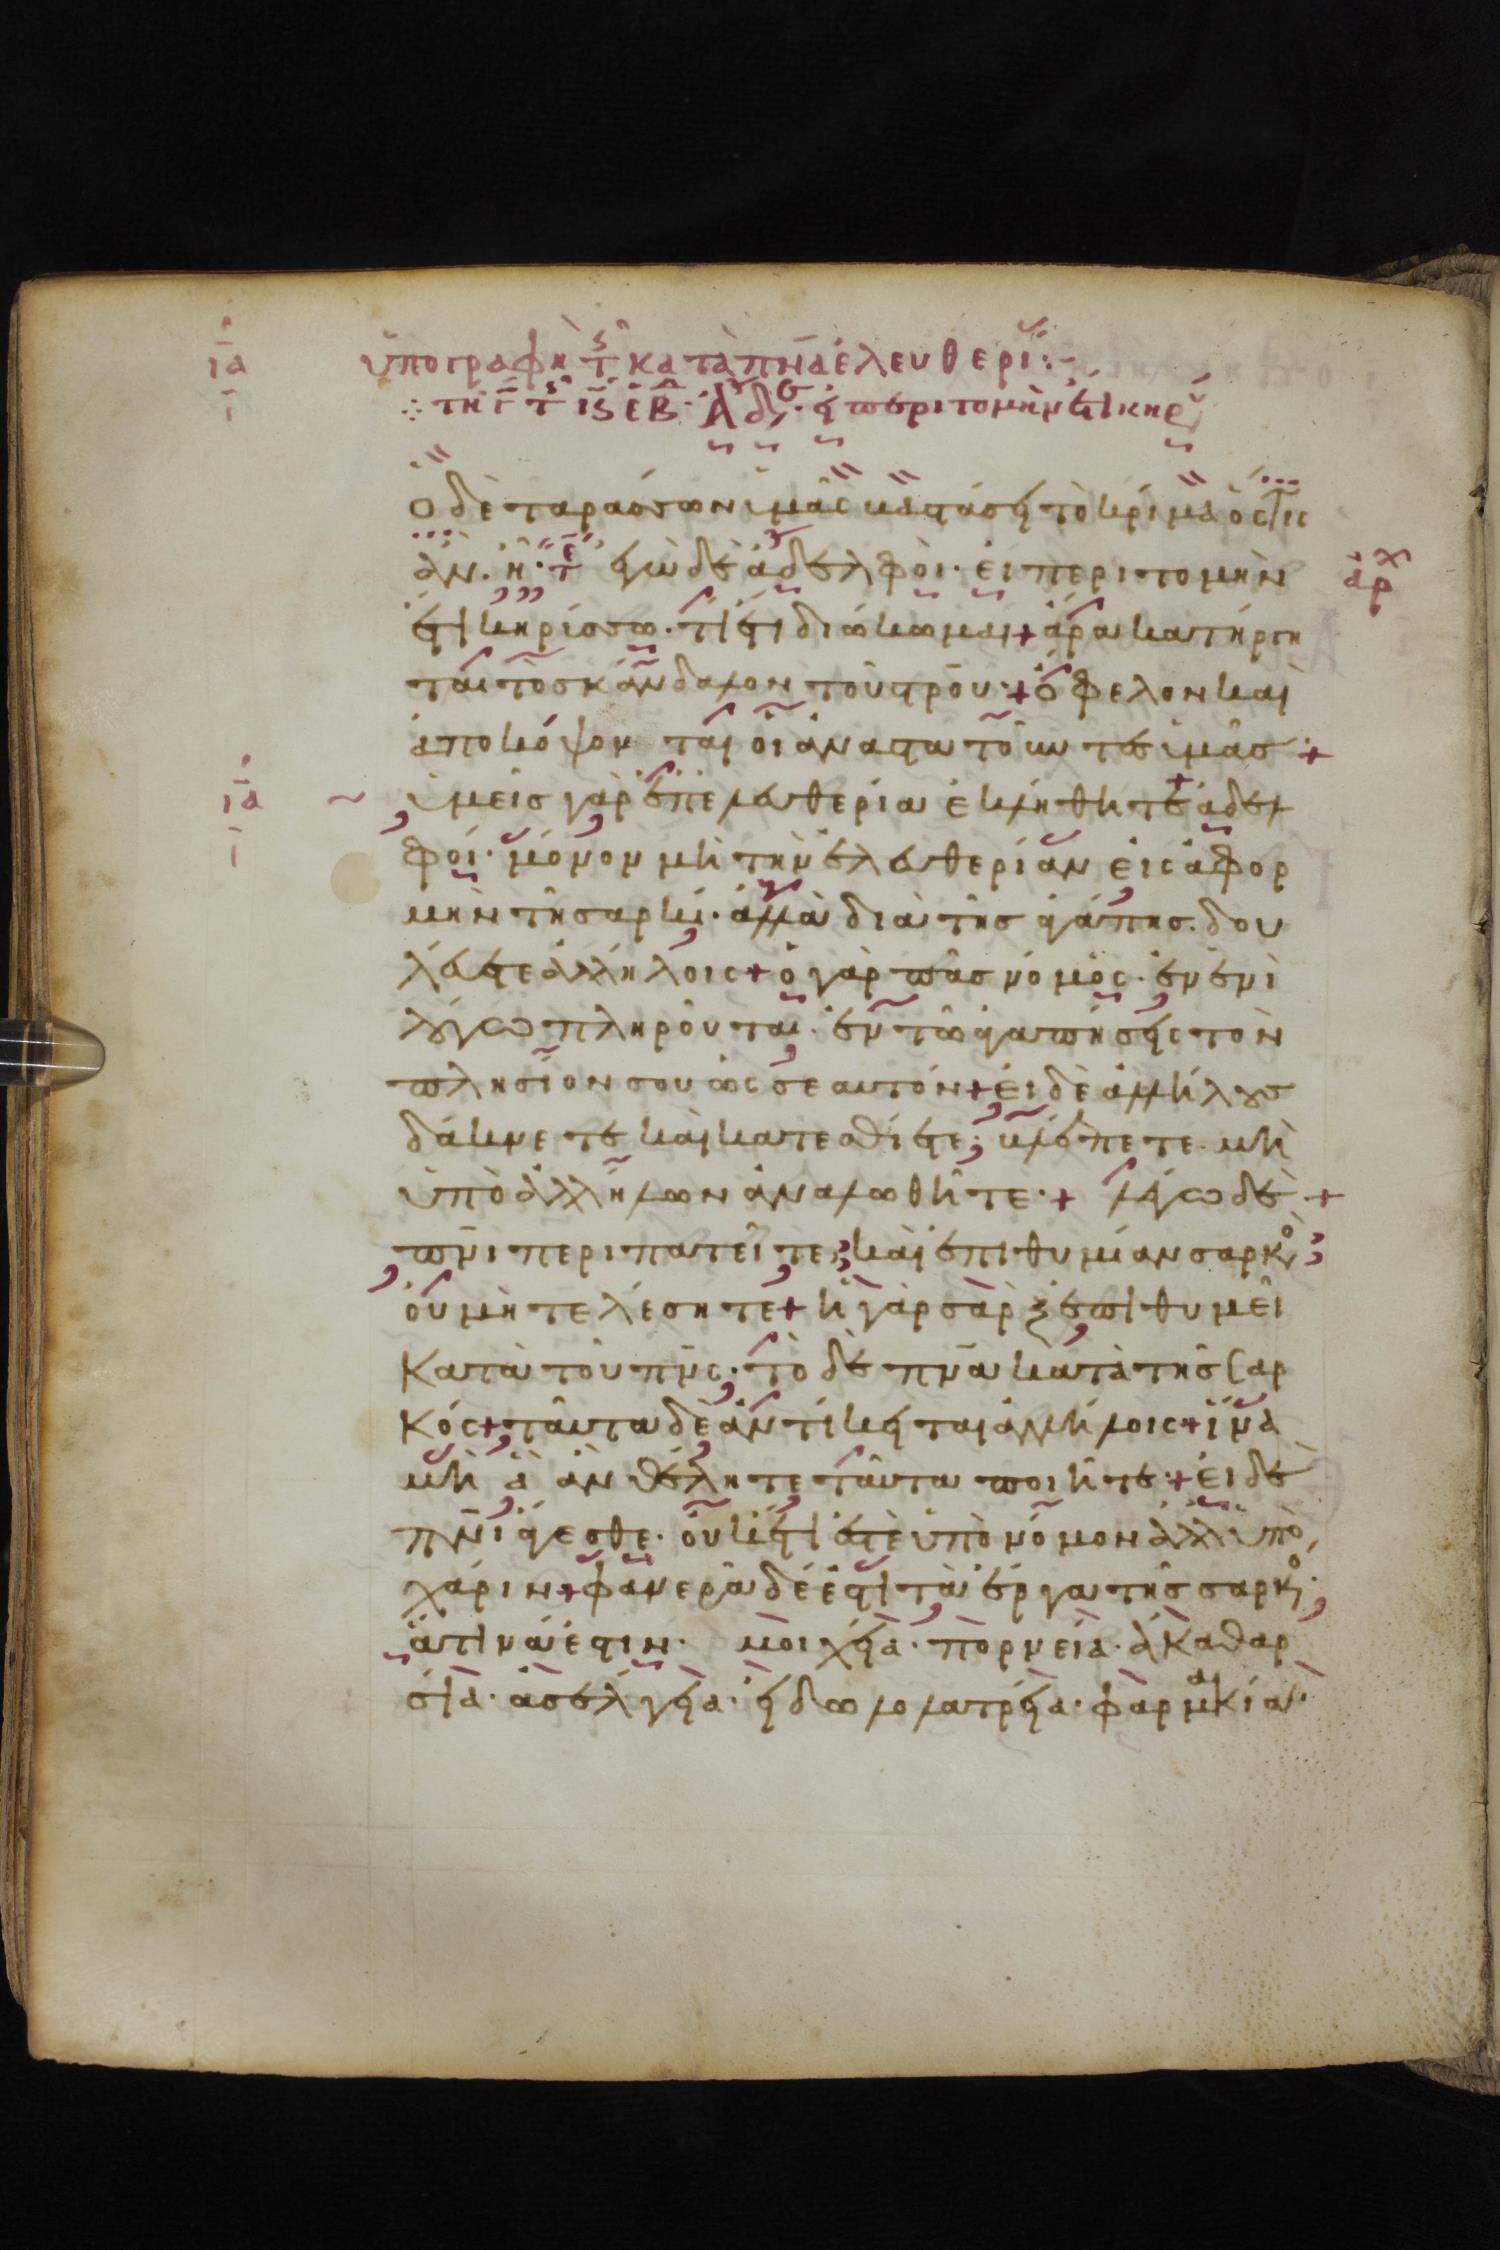 ὑπογραφὴ τ κατὰ πνα ἐλευθερι:-
τη γ τ ιϛ ἑβ. Ἀδ. εἰ περιτομὴν ἔτι κηρ
ὁ δὲ ταράσσων ὑμᾶς βαστάσει τὸ κρίμα ὅστις
ἂν. ἦ. ἐγὼ δὲ ἀδελφοὶ. εἰ περιτομὴν
ἔτι κηρύσσω. τί ἔτι διώκωμαι + ἄρα κατήργη
ται τὸ σκάνδαλον τοῦ στρου + ὄφελον καὶ
ἀποκόψονται οἱ ἀναστατοῦντες ὑμᾶς +
ια
ὑμεῖς γὰρ ἐπ' ἐλευθερία ἐκλήθητε ἀδελ
φοί. μόνον μὴ τὴν ἐλευθερίαν εἰς ἀφορ
μὴν τῆ σαρκί. ἀλλὰ διὰ τῆς ἀγάπης. δου
λεύετε ἀλλήλοις + ὁ γὰρ πᾶς νόμος. ἐν ἑνὶ
λόγω πληροῦται. ἐν τῶ ἀγαπήσεις τὸν
πλησίον σου ὡς σεαυτόν + εἰ δὲ ἀλλήλους
δάκνετε καὶ κατεσθίετε. βλέπετε. μὴ
ὑπὸ ἀλλήλων ἀναλωθῆτε. + λέγω δὲ +
πνι περιπατεῖτε, καὶ ἐπιθυμίαν σαρκὸ
οὐ μὴ τελέσητε + ἡ γὰρ σὰρξ ἐπιθυμεῖ
κατὰ τοῦ πνς. τὸ δὲ πνα κατὰ τῆς σαρ
κός + ταῦτα δὲ ἀντίκειται ἀλλήλοις + ἵνα
μὴ ἃ ἂν θέλητε ταῦτα ποιῆτε. + εἰ δὲ
πνι ἄγεσθε. οὐκ ἔτι ἐστὲ ὑπὸ νόμον ἀλλ' ὑπὸ
χάριν + φανερὰ δέ ἐστι τὰ ἔργα τῆς σαρκὸ
ἅτινά ἐστιν. μοιχεία. πορνεία. ἀκαθαρ
σία. ἀσέλγεια. εἰδωλολατρεία. φαρμακία.